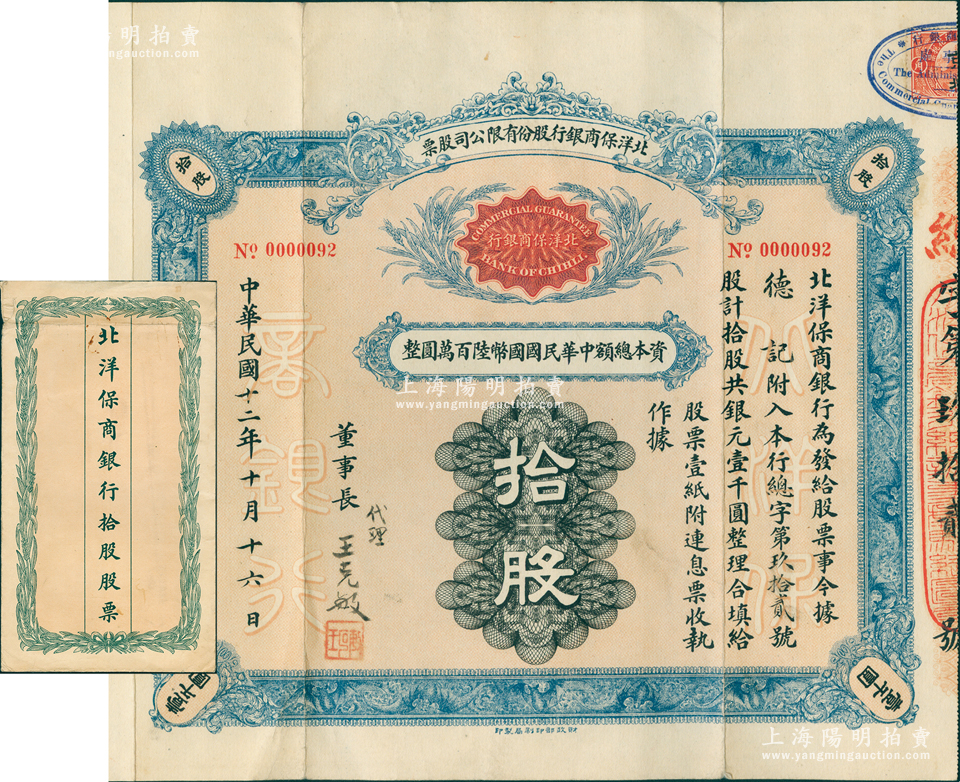 上海陽明拍賣
www.yangmingauction.com
The Commercial Gua
北洋保商銀行股份有限公司股票
拾股
拾股
COMMERCIAL GUARANTEE
北洋保商銀行
BANK OF CHIHLI.
Nº 0000092
Nº 0000092
資本總額中華民國國幣陸百萬圓整
北洋保商銀行為發給股票事今據
德記附入本行總字第玖拾貳號
股計拾股共銀元壹千圓整理合填給
股票壹紙附連息票收執
作據
拾股
董事長
代理
王克敏
中華民國十二年十月十六日
北洋保
商銀行
壹千圓
壹千圓
財政部印刷局製印
總字第玖拾貳號
北洋保商銀行拾股股票
上海陽明拍賣
www.yangmingauction.com
上海陽明拍賣
www.yangmingauction.com